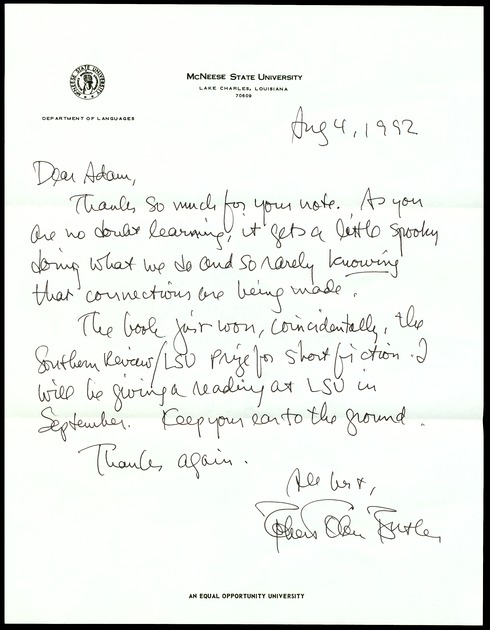 McNeese State University
LAKE CHARLES, LOUISIANA
70609
DEPARTMENT OF LANGUAGES
Aug 4, 1992
Dear Adam,
Thanks so much for your note. As you
are no doubt learning, it gets a little spooky
doing what we do and so rarely knowing
that connections are being made.
The book just won, coincidentally, the
Southern Review/LSU Prize for short fiction. I
will be giving a reading at LSU in
September. Keep your ear to the ground.
Thanks again.
All best,
Robert Olen Butler
AN EQUAL OPPORTUNITY UNIVERSITY